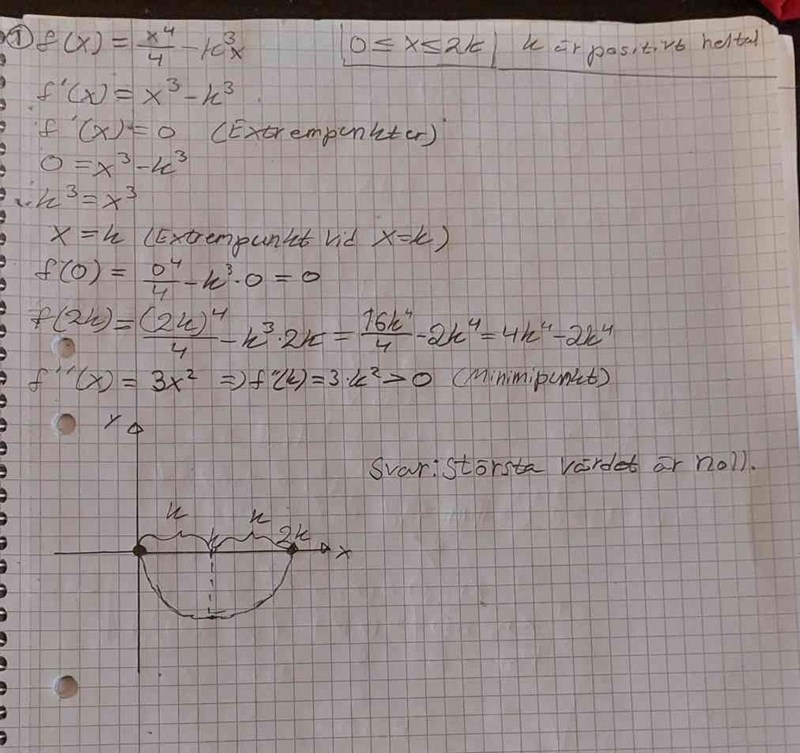 ① f(x) = x⁴/4 - k³x  0 ≤ x ≤ 2k  k är positivt heltal
f'(x) = x³ - k³
f'(x) = 0 (Extrempunkter)
0 = x³ - k³
k³ = x³
x = k (Extrempunkt vid x=k)
f(0) = 0⁴/4 - k³·0 = 0
f(2k) = (2k)⁴/4 - k³·2k = 16k⁴/4 - 2k⁴ = 4k⁴ - 2k⁴
f''(x) = 3x² ⇒ f''(k) = 3·k² > 0 (Minimipunkt)
Y
Svar: Största värdet är noll.
k k
k 2k
x